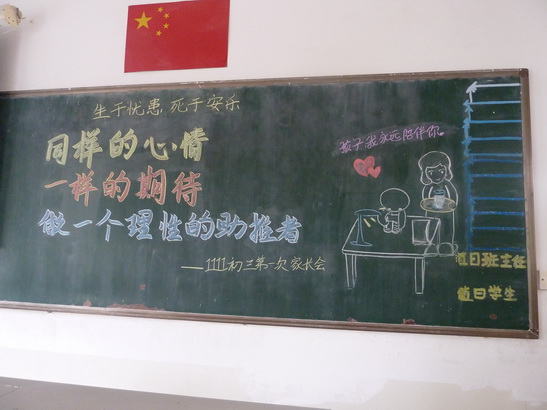 生于忧患 死于安乐
同样的心情
一样的期待
做一个理性的助推者
——1111初三第一次家长会
孩子我永远陪伴你。
值日班主任
值日学生